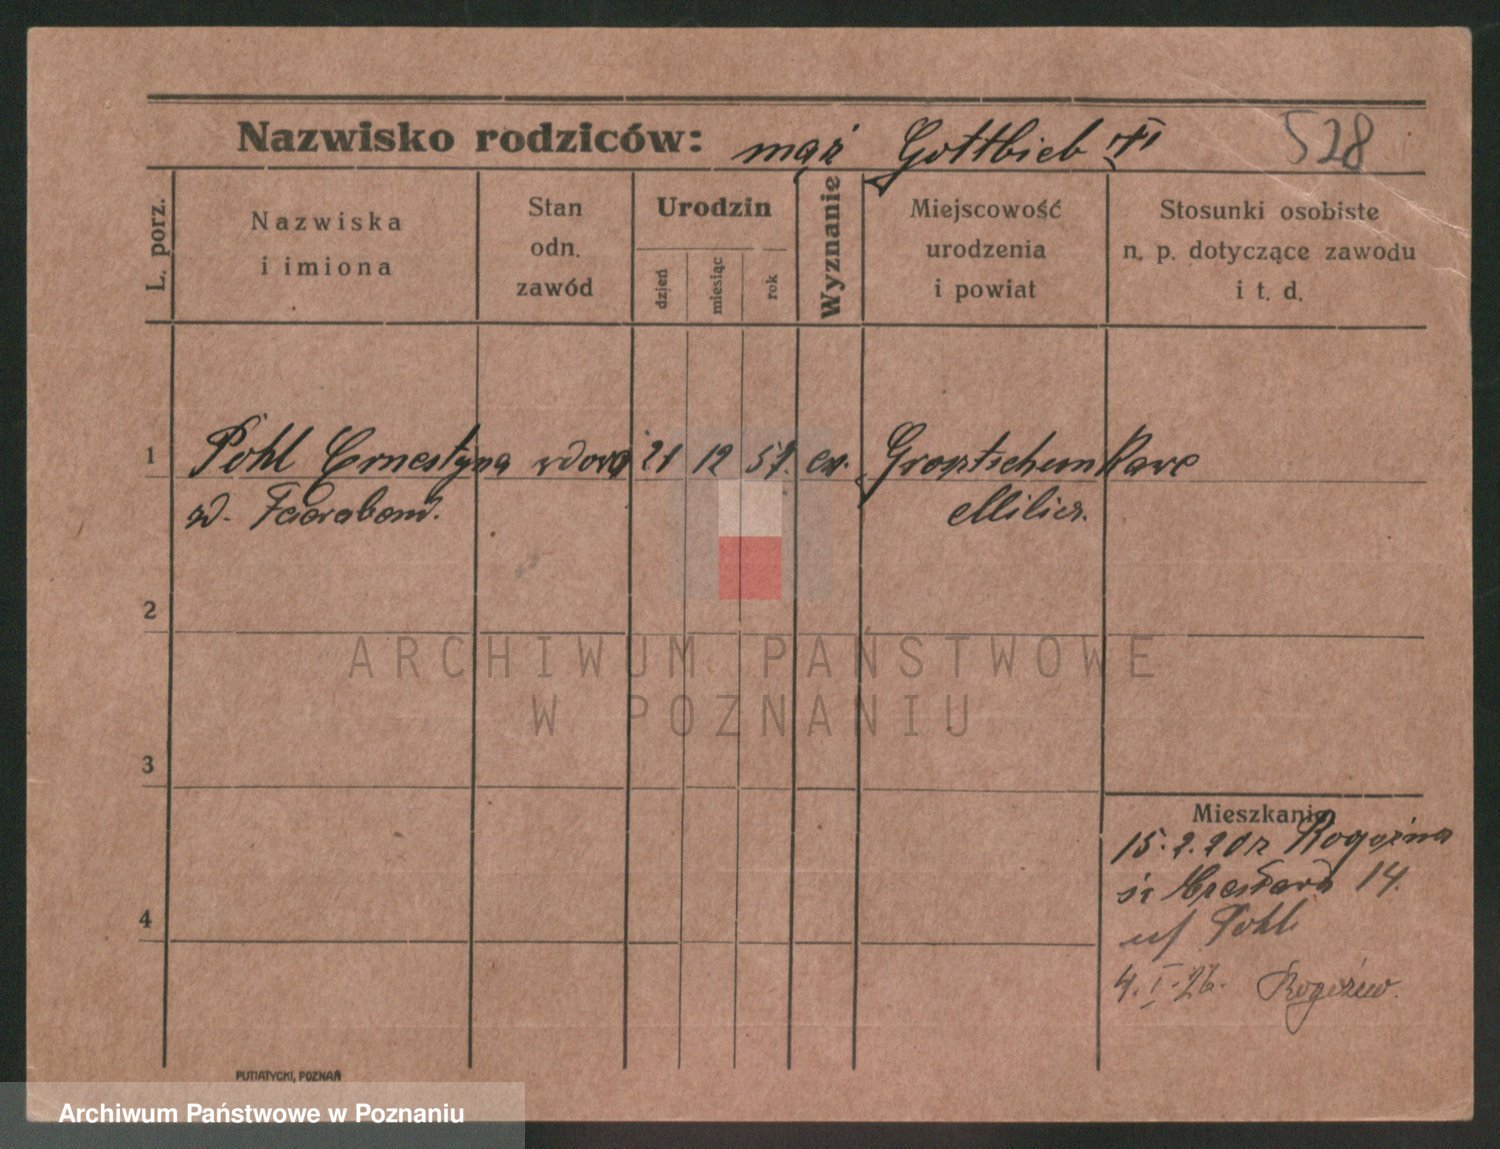 Nazwisko rodziców: mąż Gottlieb 528
L. porz.
Nazwiska
i imiona
Stan
odn.
zawód
Urodzin
dzień
miesiąc
rok
Wyznanie
Miejscowość
urodzenia
i powiat
Stosunki osobiste
n. p. dotyczące zawodu
i t. d.
1 Pohl Ernestyna wdova 21 12 57. ew.
Milicz.
2
3
4
Mieszkanie
15.2.20 r Rogoźna
14.
Pohl
4.I.26. Rogoźno.
PUTIATYCKI, POZNAŃ
ARCHIWUM PAŃSTWOWE
W POZNANIU
Archiwum Państwowe w Poznaniu